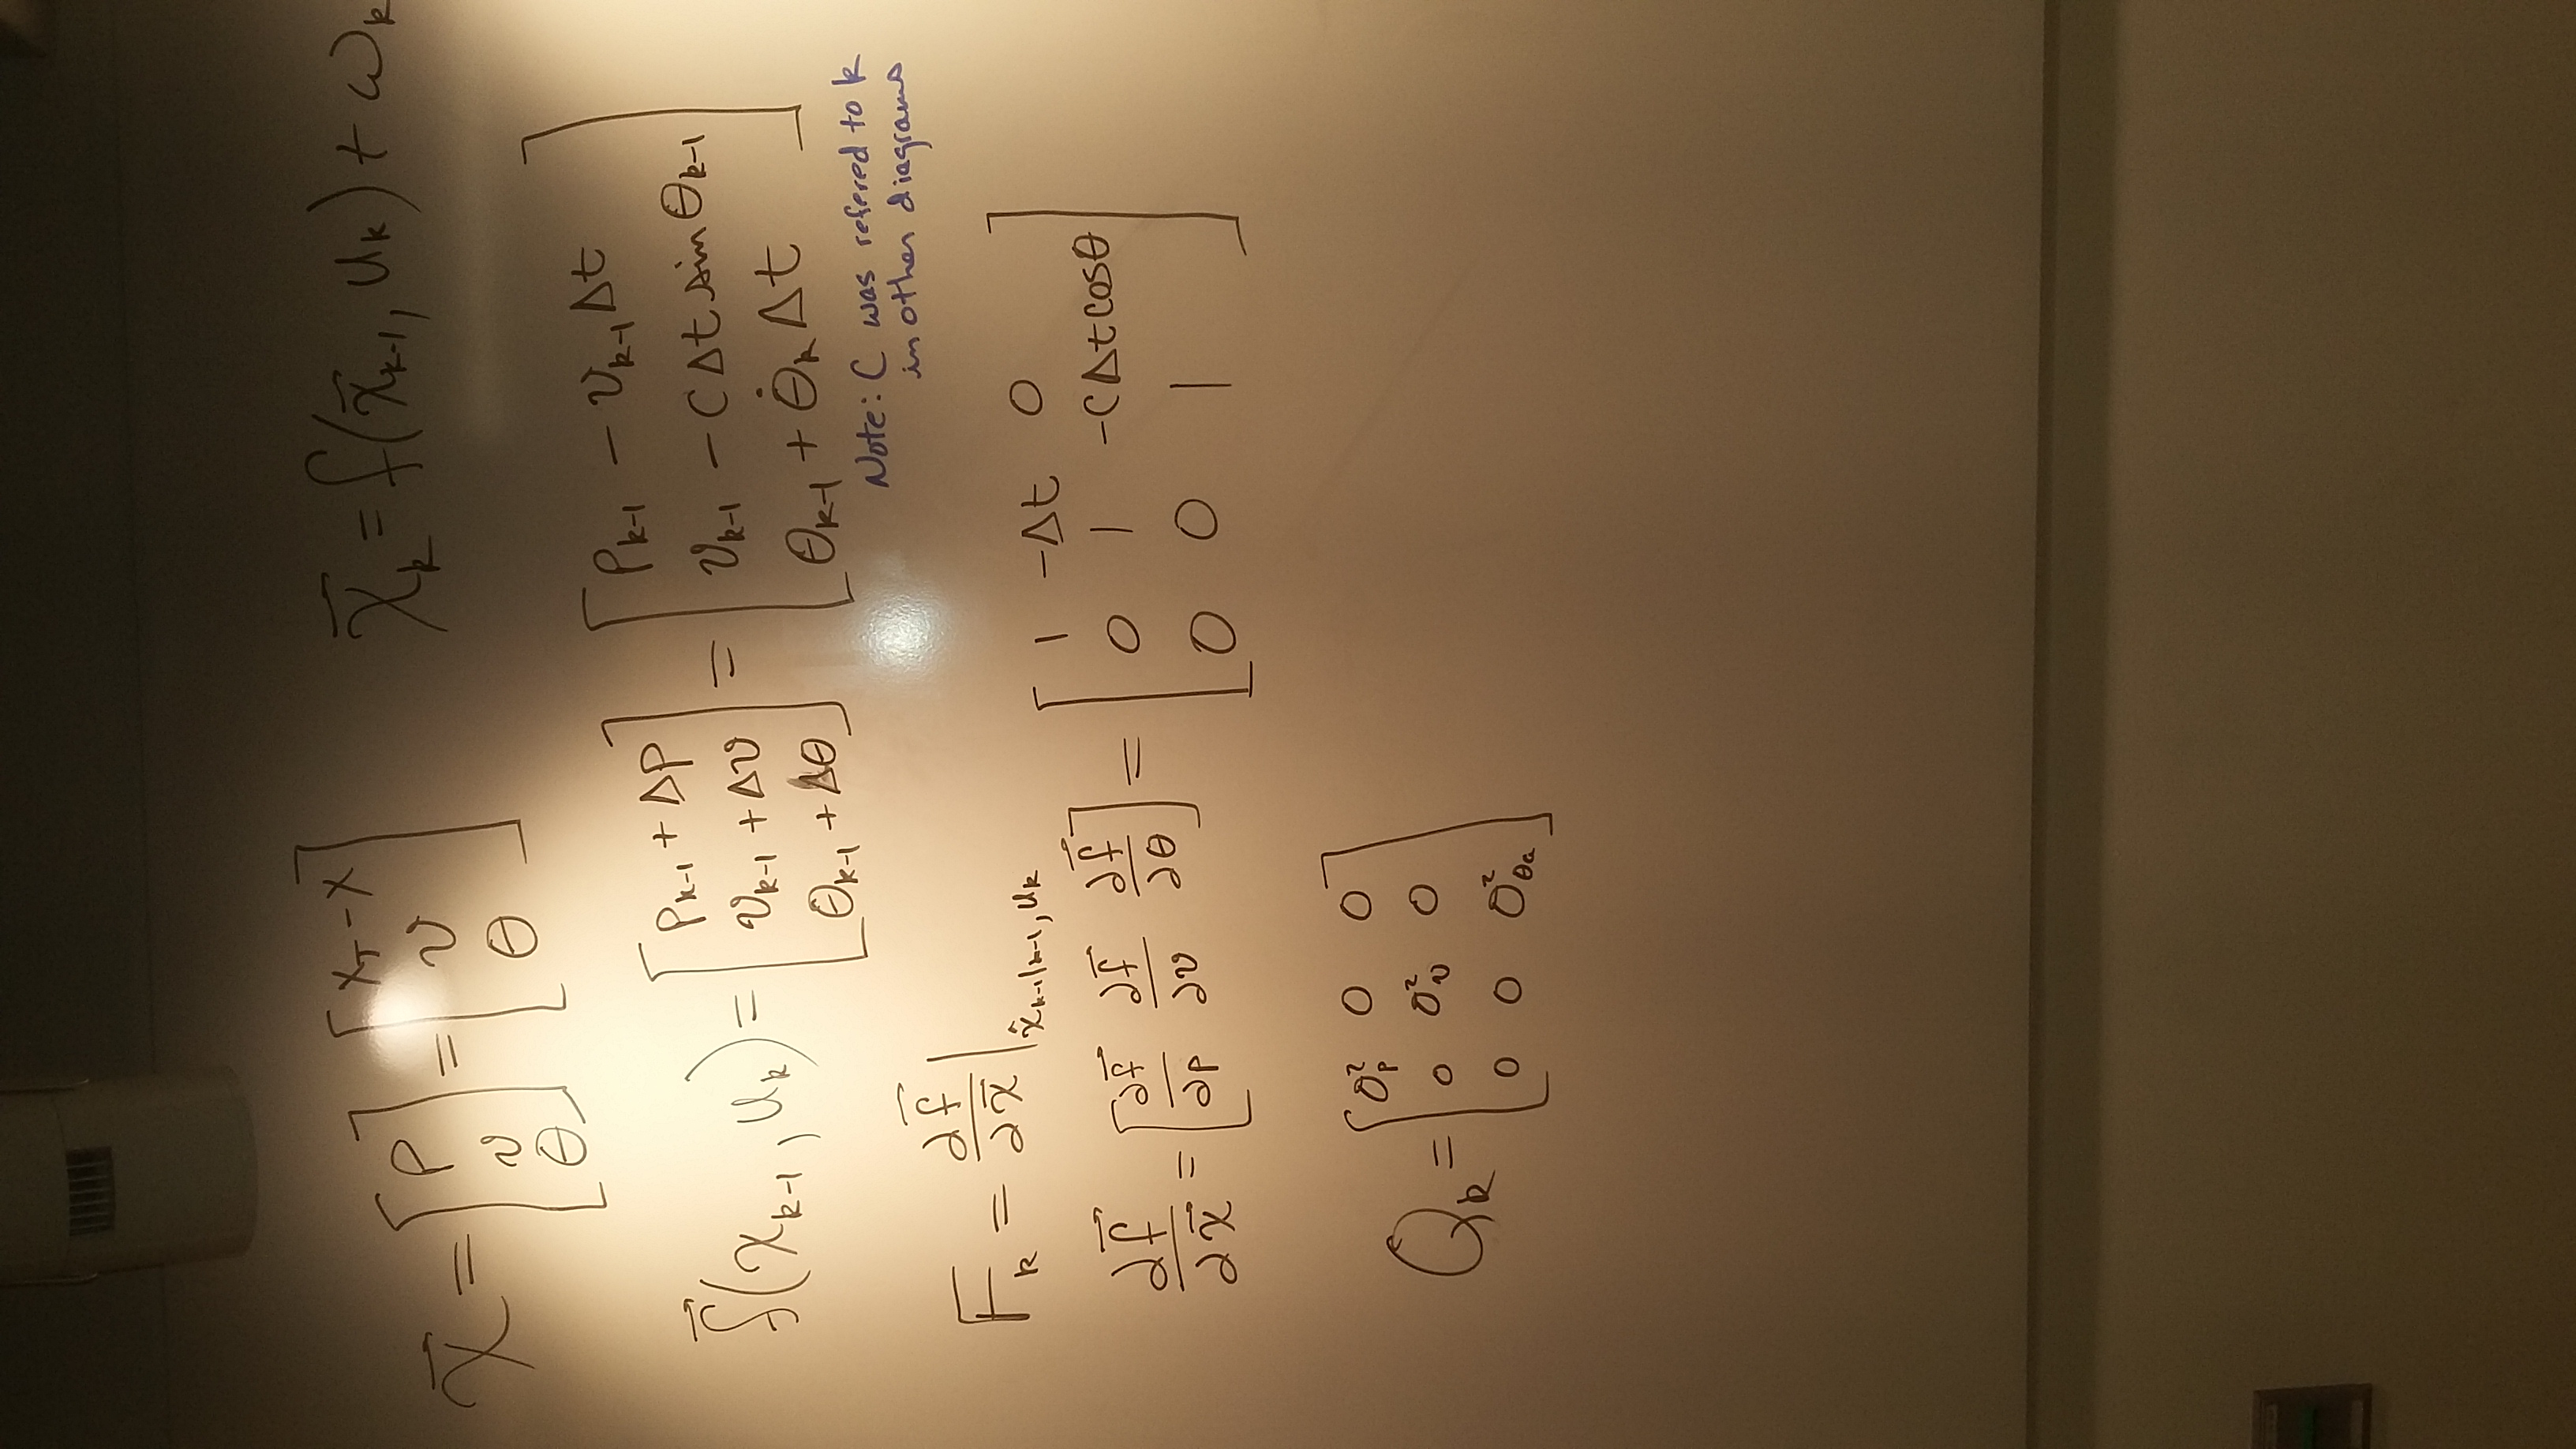 x⃗ = [p v θ] = [x_T - x v θ]
x⃗_k = f(x⃗_{k-1}, u_k) + ω_k
f⃗(x_{k-1}, u_k) = [p_{k-1} + Δp v_{k-1} + Δv θ_{k-1} + Δθ] = [p_{k-1} - v_{k-1}Δt v_{k-1} - CΔt sin θ_{k-1} θ_{k-1} + θ̇_k Δt]
Note: C was refered to k
in other diagrams
F_k = ∂f⃗/∂x⃗ |_{x̂_{k-1|k-1}, u_k}
∂f⃗/∂x⃗ = [∂f⃗/∂p ∂f⃗/∂v ∂f⃗/∂θ] = [1 -Δt 0
0 1 -CΔt cosθ
0 0 1]
Q_k = [σ²_p 0 0
0 σ²_v 0
0 0 σ²_{θa}]